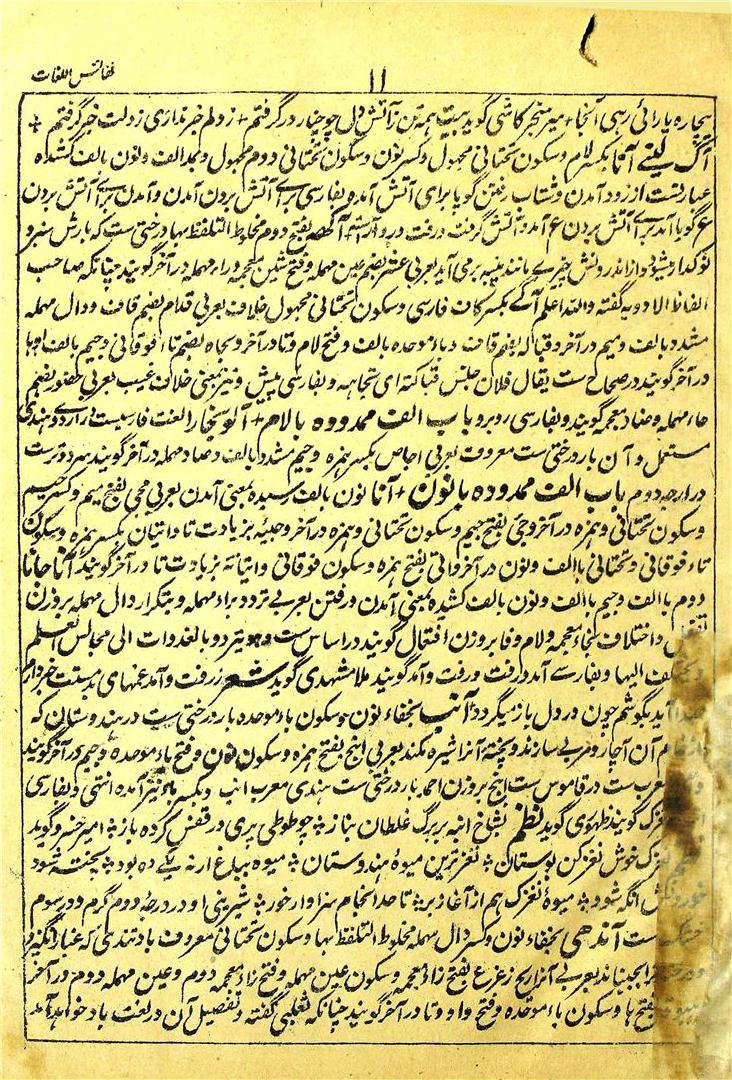 نفائس اللغات
۱۱
بیچاره یارائ رسی آنجا + میر سنجر کاشی گوید بیت همه تن زآتش دل چو چنار در گرفتم + زدلم خبر نداری زدلت خبر گرفتم +
آگ لینے آنا بکسر لام و سکون تحتانی مجهول و کسر نون و سکون تحتانی دوم مجهول و بمد الف و نون بالف کشیده
عبارتست از زود آمدن و شتاب رفتن گویا برای آتش آمده بفارسی برای آتش بردن آمدن و آمدن برای آتش بردن
ع گویا آمد برای آتش بردن ع آمد و آتش گرفت و رفت در وارسته + آکهه بفتح دوم مخلوط التلفظ بها درختی ست که بارش سبز و
نوکدار میشود و از اندرونش چیزے مانند پنبه بر می آید بعربی عشر بضم عین مهمله و فتح شین معجمه و راء مهمله در آخر گویند چنانکه صاحب
الفاظ الادویه گفته والله اعلم آگے بکسر کاف فارسی و سکون تحتانی مجهول خلاف بعربی قدام بضم قاف و دال مهمله
مشدد بالف و میم در آخر و قباله بضم قاف و باء موحده بالف و فتح لام و تا در آخر و تجاه بضم تاء فوقانی و جیم بالف و ها
در آخر گویند در صحاح ست یقال فلان جلس قبالته ای تجاهه و بفارسی پیش و نیز بمعنی خلاف غیب بعربی حضور بضم
حاء مهمله و ضاد معجمه گویند و بفارسی روبرو باب الف ممدوده بالام + آلو بخارا لغت فارسیست در اردو هندی
مستعمل و آن بار درختی ست معروف بعربی اجاص بکسر همزه و جیم مشدد بالف و صاد مهمله در آخر گویند سرد و تر ست
در درجه دوم باب الف ممدوده بانون + آنا نون بالف رسیده بمعنی آمدن بعربی مجی بفتح میم و کسر جیم
و سکون تحتانی و همزه در آخر و جئ بفتح جیم و سکون تحتانی و همزه در آخر و جیئة بزیادت تا و اتیان بکسر همزه و سکون
تاء فوقانی و تحتانی بالف و نون در آخر و اتی بفتح همزه و سکون فوقانی و اتیانة بزیادت تا در آخر گویند آنا جانا
دوم بالف و جیم بالف و نون بالف کشیده بمعنی آمدن و رفتن بعربے تردد براء مهمله و بتکرار دال مهمله بر وزن
و اختلاف بخاء معجمه و لام و فا بر وزن افتعال گویند در اساس ست و هو یتردد بالغدوات الی مجالس العلم
و یختلف الیها و بفارسے آمد و رفت و رفت و آمد گویند ملا مشهدی گوید شعر ز رفت و آمد غمهای بدستت خبر دارم
آید بگوشم چون در دل باز میگردد + آنب بخفاء نون و سکون باء موحده بار درختی ست در هندوستان که
خام آن آچار و مربے سازند و پخته آنرا شیره مکند بعربی انبج بفتح همزه و سکون نون و فتح باء موحده و جیم در آخر گویند
معرب ست در قاموس ست انبج بر وزن احمد بار درختی ست هندی معرب انب و بکسر باء نیز آمده انتهی و بفارسی
نغزک گویند ظهوری گوید نظم بشاخ انبه بر برگ غلطان بناز * چو طوطی پری در قفس کرده باز * امیر خسرو گوید
نغزک خوش نغز کن بوستان * نغز ترین میوه هندوستان * میوه بباغ ار نه یکے ده بود * پخته شود
انگه شود * میوه نغزک هم از آغاز بر * تا حد انجام سزاوار خور * شیرینی او در درجه دوم گرم و در سوم
ست آندهی بخفاء نون و کسر دال مهمله مخلوط التلفظ بها و سکون تحتانی معروف باد تند که غبار انگیزد
بجنباند بعربے آنرا ریح زعزع بفتح زاء معجمه و سکون عین مهمله و فتح زاء معجمه دوم و عین مهمله دوم در آخر
بفتح ها و سکون باء موحده و فتح واو و تا در آخر گویند چنانکه ثعلبی گفته و تفصیل آن در لغت باد خواهد آمد